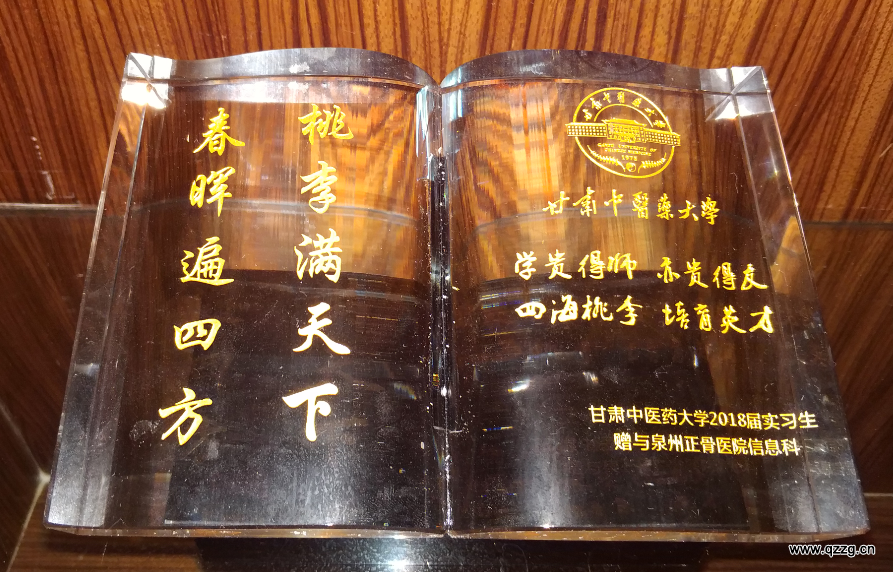 桃李满天下
春晖遍四方
甘肃中医药大学
GANSU UNIVERSITY OF
CHINESE MEDICINE
1978
甘肃中醫藥大學
学贵得师 亦贵得友
四海桃李 培育英才
甘肃中医药大学2018届实习生
赠与泉州正骨医院信息科
www.qzzg.cn